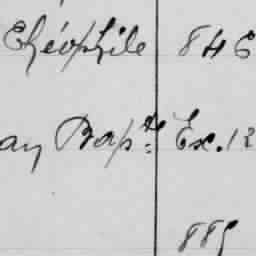 Théophile 846
an Bapte Ex. 12
885